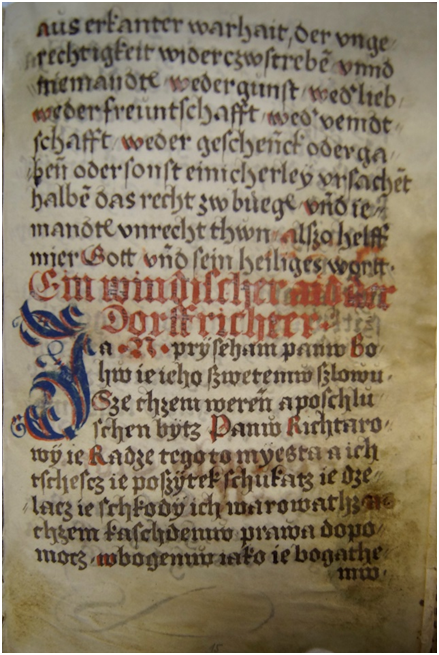 aus erkanter warhait, der vnge⸗
rechtigkeit widerczwstrebē vnnd
niemandtꝭ weder gunst wed' lieb⸗
weder freuntschafft wed' vemdt
schafft weder geschenck oder ga⸗
ben oder sonst einicherley vrsachēt
halbē das recht zw buegē vnd ie⸗
mandtꝭ vnrecht thwn alszo helff
mier Gott vnd sein heiliges wortt.
Ein windischer aid der
Dorff richter
Ja .N. pryseham panw Bo⸗
hw ie ieho szwetemw szlowu⸗
Sze chzem weren a poschlu⸗
schen bytz Panw Richtaro⸗
wy ie Radze tego to myesta a ich
tschescz ie poszytek schukatz ie dze⸗
lacz ie schkody ich warowathz a⸗
chzem kaschdemw prawa dopo⸗
mocz wbogemw iako ie bogathe⸗
mw.